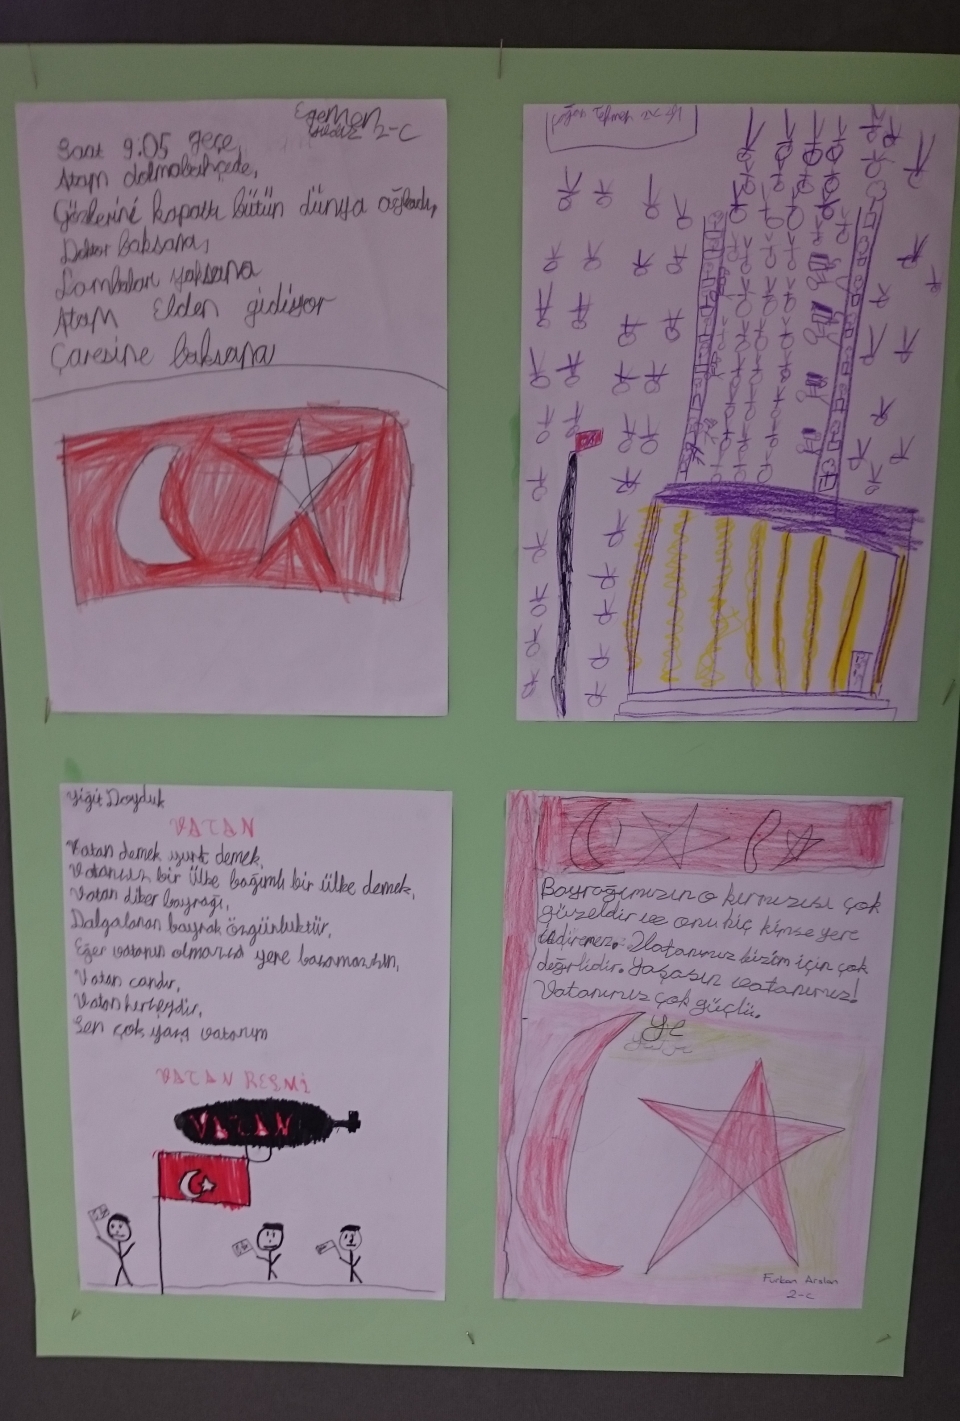 Egemen
2-C
Saat 9:05 geçe,
Atam dolmabahçede,
Gözlerini kapattı bütün dünya ağladı,
Doktor baksana,
Lambaları yaksana
Atam Elden gidiyor
Çaresine baksana
Yiğit Doyduk
VATAN
Vatan demek yurt demek,
Vatansız bir ülke bağımlı bir ülke demek,
Vatan diker bayrağı,
Dalgalanan bayrak özgünlüktür,
Eğer vatanın olmazsa yere basamazsın,
Vatan candır,
Vatan herşeydir,
Sen çok yaşa vatanım
VATAN RESMİ
VATAN
Bayrağımızın o kırmızısı çok
güzeldir ve onu hiç kimse yere
indiremez. Vatanımız bizim için çok
değerlidir. Yaşasın vatanımız!
Vatanımız çok güçlü.
Furkan Arslan
2-c